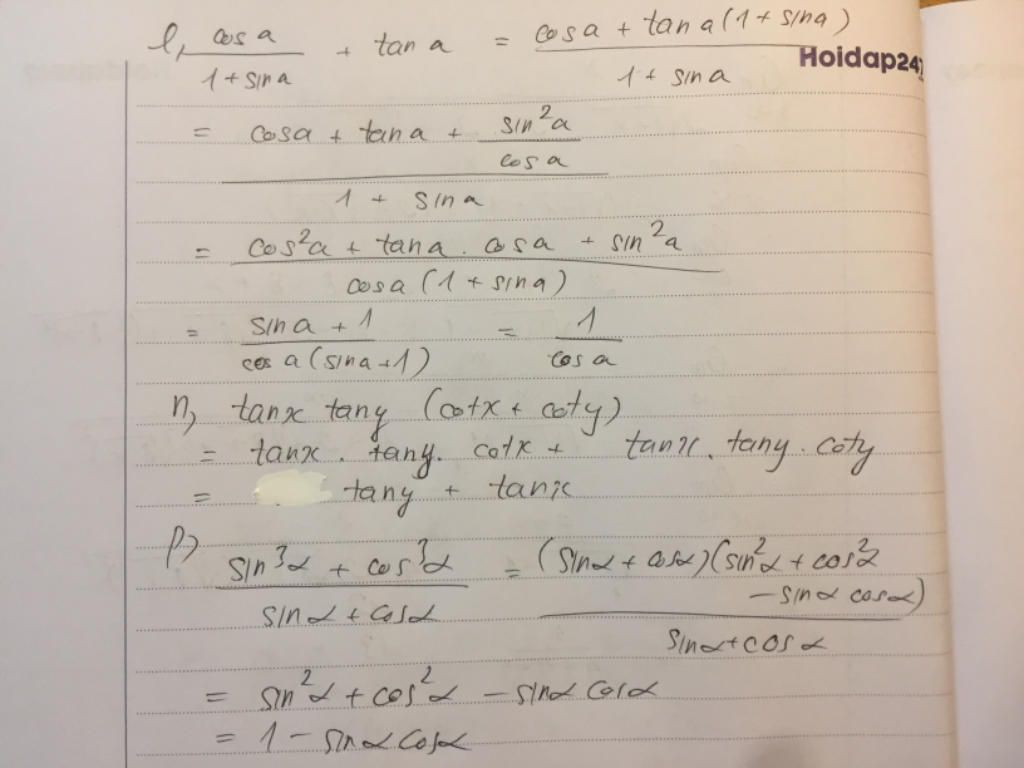 l, cos a / (1 + sin a) + tan a = (cos a + tan a (1 + sin a)) / (1 + sin a)
Hoidap247
= (cos a + tan a + sin²a / cos a) / (1 + sin a)
= (cos²a + tan a . cos a + sin²a) / (cos a (1 + sin a))
= (sin a + 1) / (cos a (sin a + 1)) = 1 / cos a
n, tanx tany (cotx + coty)
= tanx . tany . cotx + tanx . tany . coty
= tany + tanx
p) (sin³α + cos³α) / (sinα + cosα) = (sinα + cosα)(sin²α + cos²α - sinα cosα) / (sinα + cosα)
= sin²α + cos²α - sinα cosα
= 1 - sinα cosα